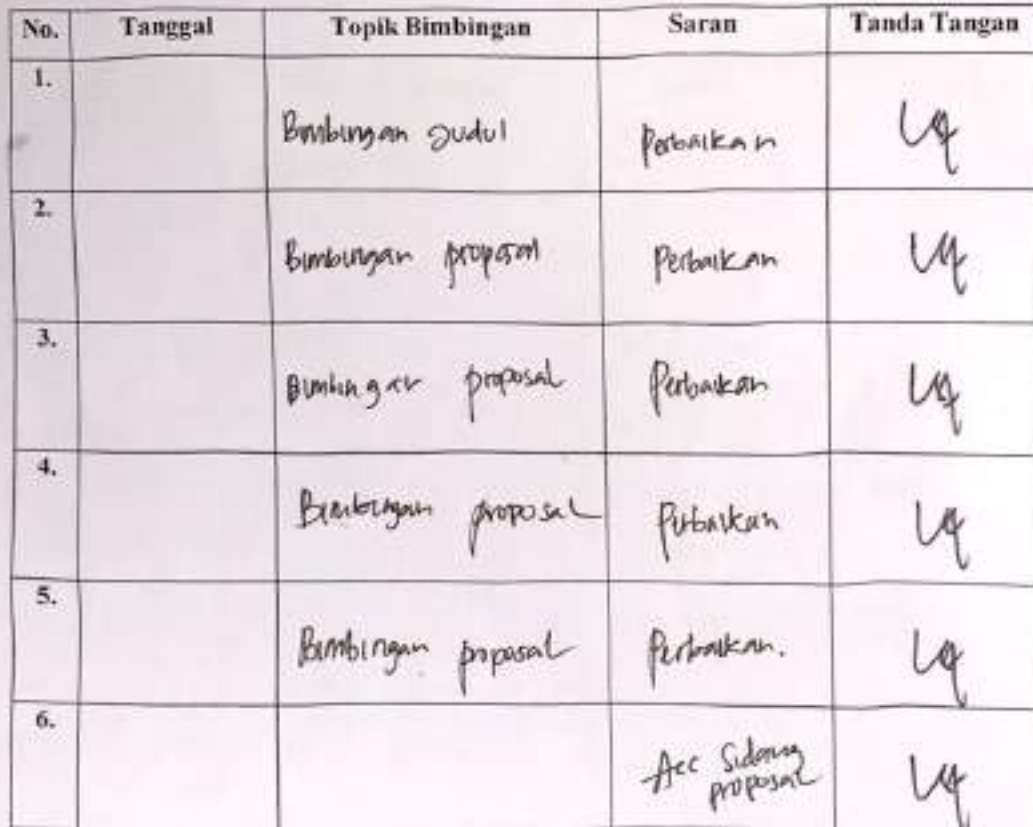 No. Tanggal Topik Bimbingan Saran Tanda Tangan
1.
Bimbingan Judul Perbaikan
2.
Bimbingan proposal Perbaikan
3.
Bimbingan proposal Perbaikan
4.
Bimbingan proposal Perbaikan
5.
Bimbingan proposal Perbaikan.
6.
Acc Sidang
proposal